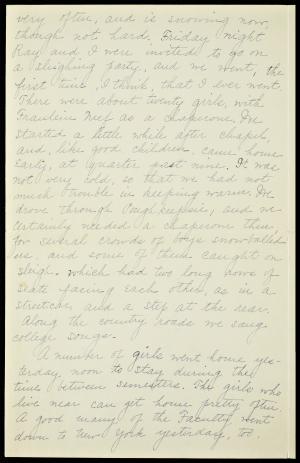 very often, and is snowing now,
though not hard. Friday night
Ray and I were invited to go on
a sleighing party, and we went, the
first time, I think, that I ever went.
There were about twenty girls, with
Fraulein Neef as a chaperone. We
started a little while after chapel,
and, like good children, came home
early, at quarter past nine. It was
not very cold, so that we had not
much trouble in keeping warm. We
drove through Poughkeepsie, and we
certainly needed a chaperone then,
for several crowds of boys snow-balled
us, and some of them caught on
sleigh, which had two long rows of
seats facing each other, as in a
streetcar, and a step at the rear.
Along the country roads we sang
college songs.
A number of girls went home yes-
terday noon to stay during the
time between semesters. The girls who
live near can get home pretty often.
A good many of the Faculty went
down to New York yesterday, too.